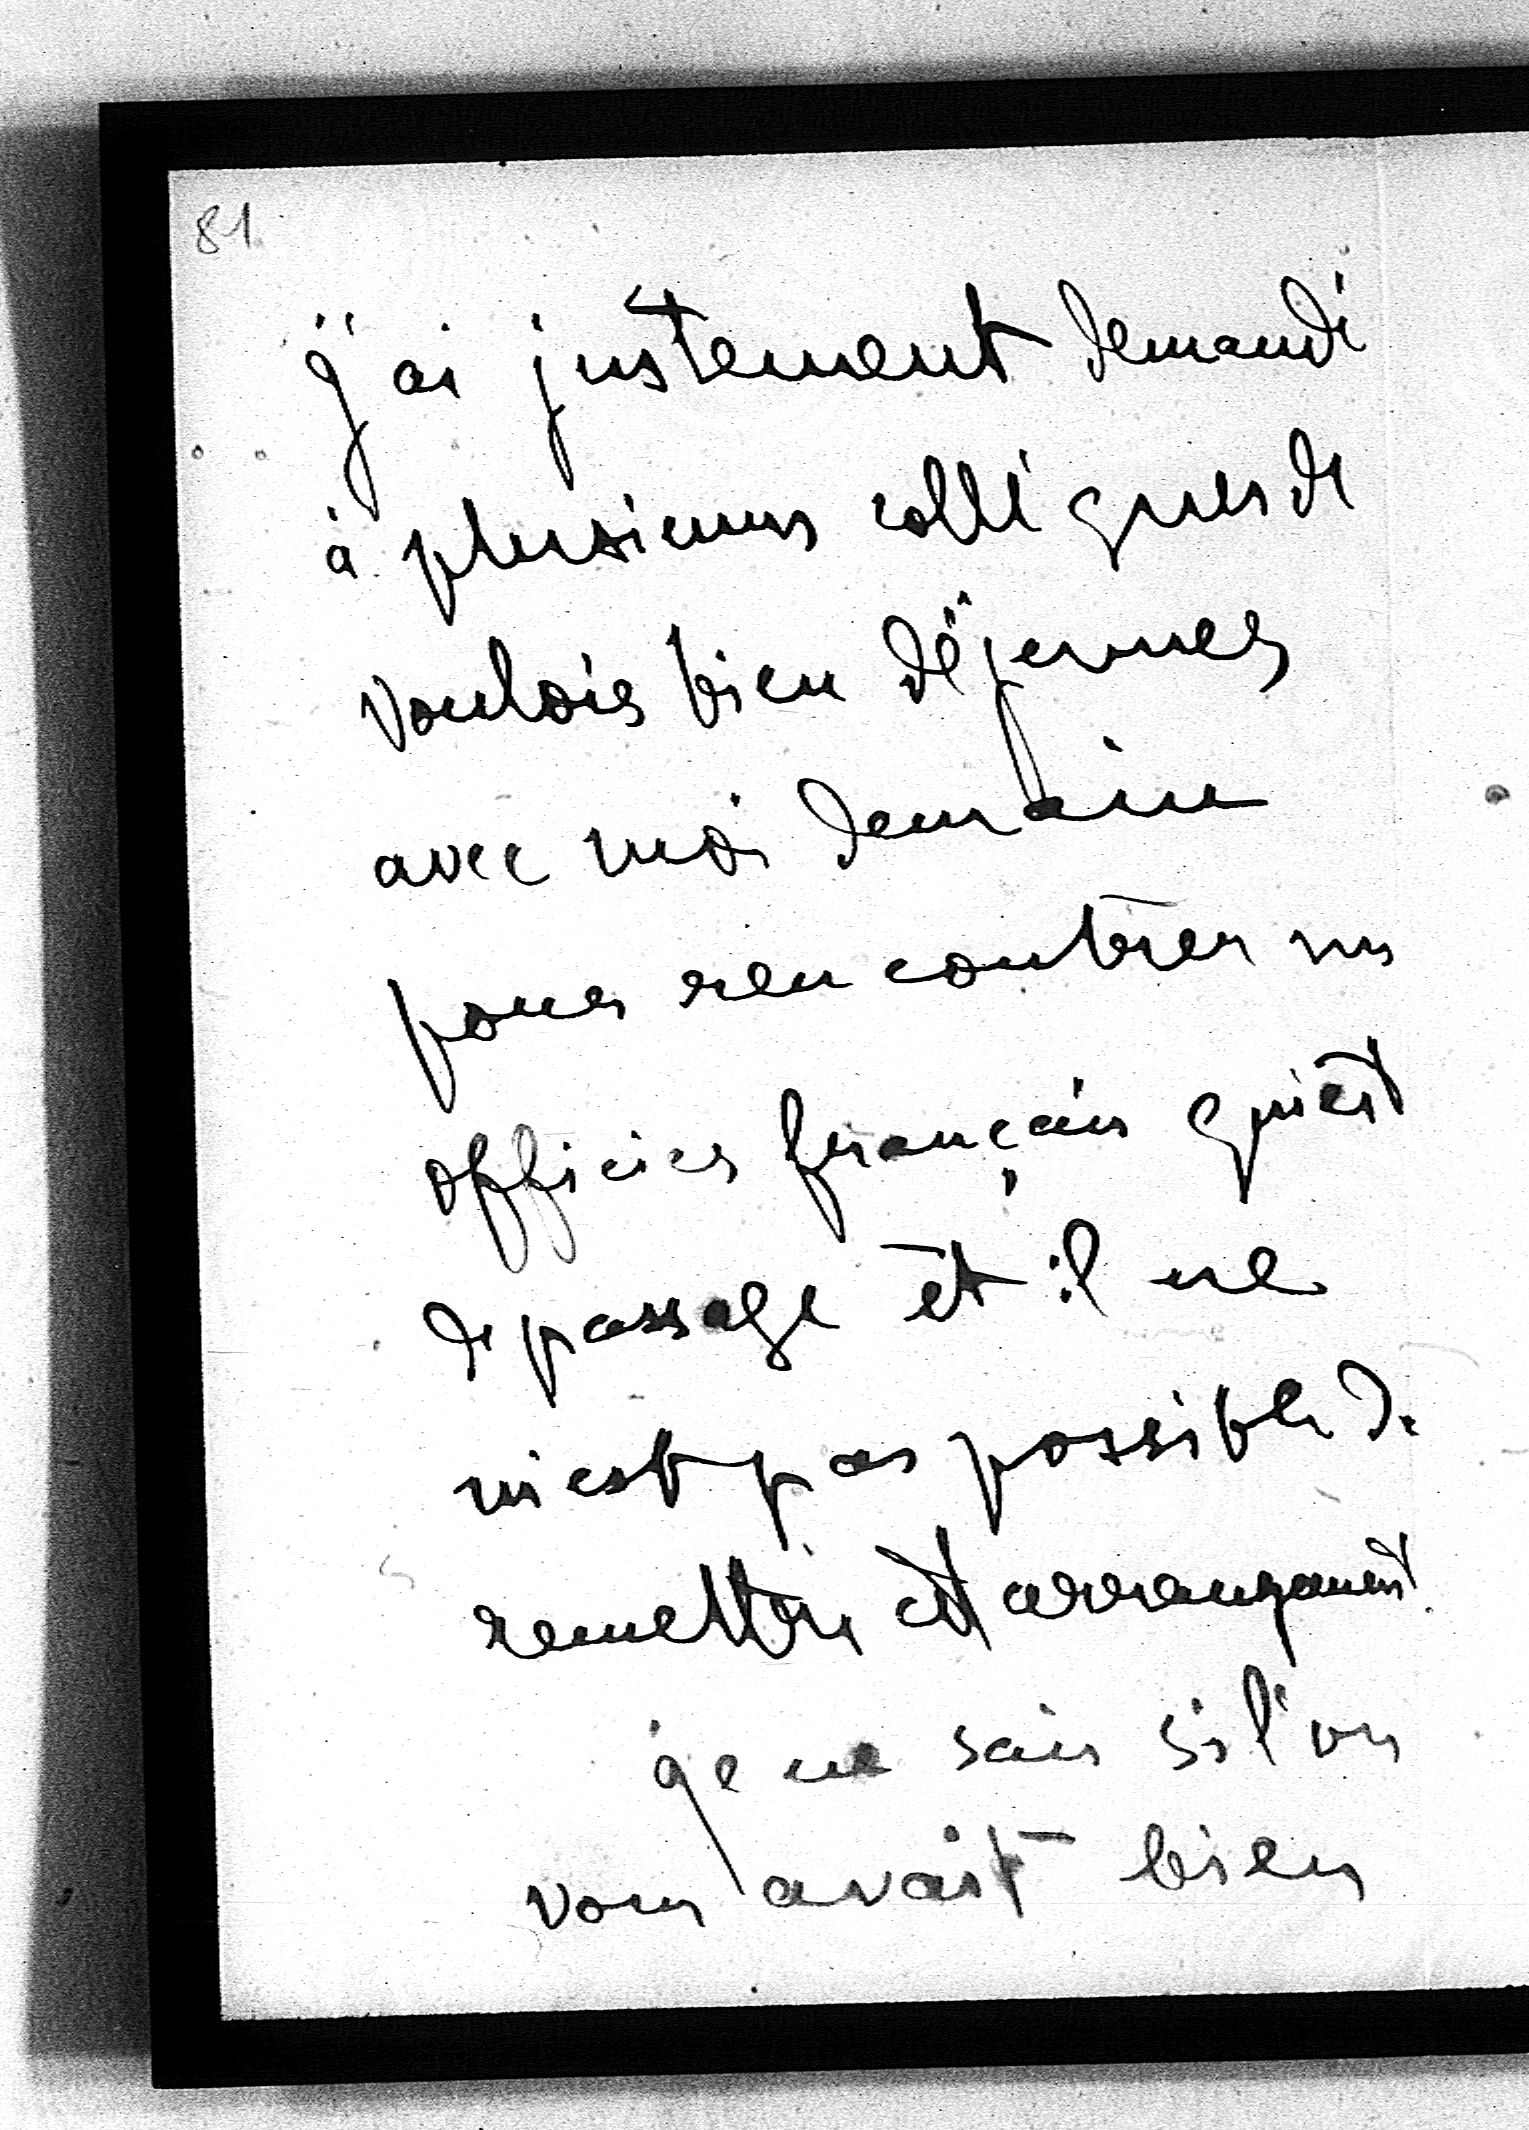 81
j'ai justement demandé
à plusieurs collègues de
vouloir bien déjeuner
avec moi demain
pour rencontrer un
officier français qui est
de passage et il ne
m'est pas possible de
remettre cet arrangement
je ne sais si l'on
vous avait bien